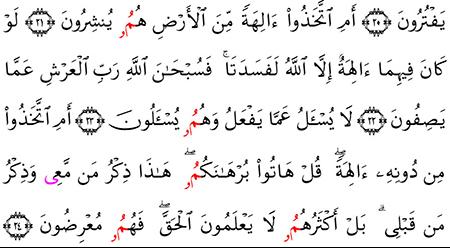 يَفْتُرُونَ ﴿٢٠﴾ أَمِ ٱتَّخَذُوٓا۟ ءَالِهَةً مِّنَ ٱلْأَرْضِ هُمُۥ يُنشِرُونَ ﴿٢١﴾ لَوْ
كَانَ فِيهِمَا ءَالِهَةٌ إِلَّا ٱللَّهُ لَفَسَدَتَا ۚ فَسُبْحَانَ ٱللَّهِ رَبِّ ٱلْعَرْشِ عَمَّا
يَصِفُونَ ﴿٢٢﴾ لَا يُسْـَٔلُ عَمَّا يَفْعَلُ وَهُمُۥ يُسْـَٔلُونَ ﴿٢٣﴾ أَمِ ٱتَّخَذُوا۟
مِن دُونِهِۦٓ ءَالِهَةً ۖ قُلْ هَاتُوا۟ بُرْهَـٰنَكُمُۥ ۖ هَـٰذَا ذِكْرُ مَن مَّعِى وَذِكْرُ
مَن قَبْلِى ۗ بَلْ أَكْثَرُهُمُۥ لَا يَعْلَمُونَ ٱلْحَقَّ ۖ فَهُمُۥ مُعْرِضُونَ ﴿٢٤﴾